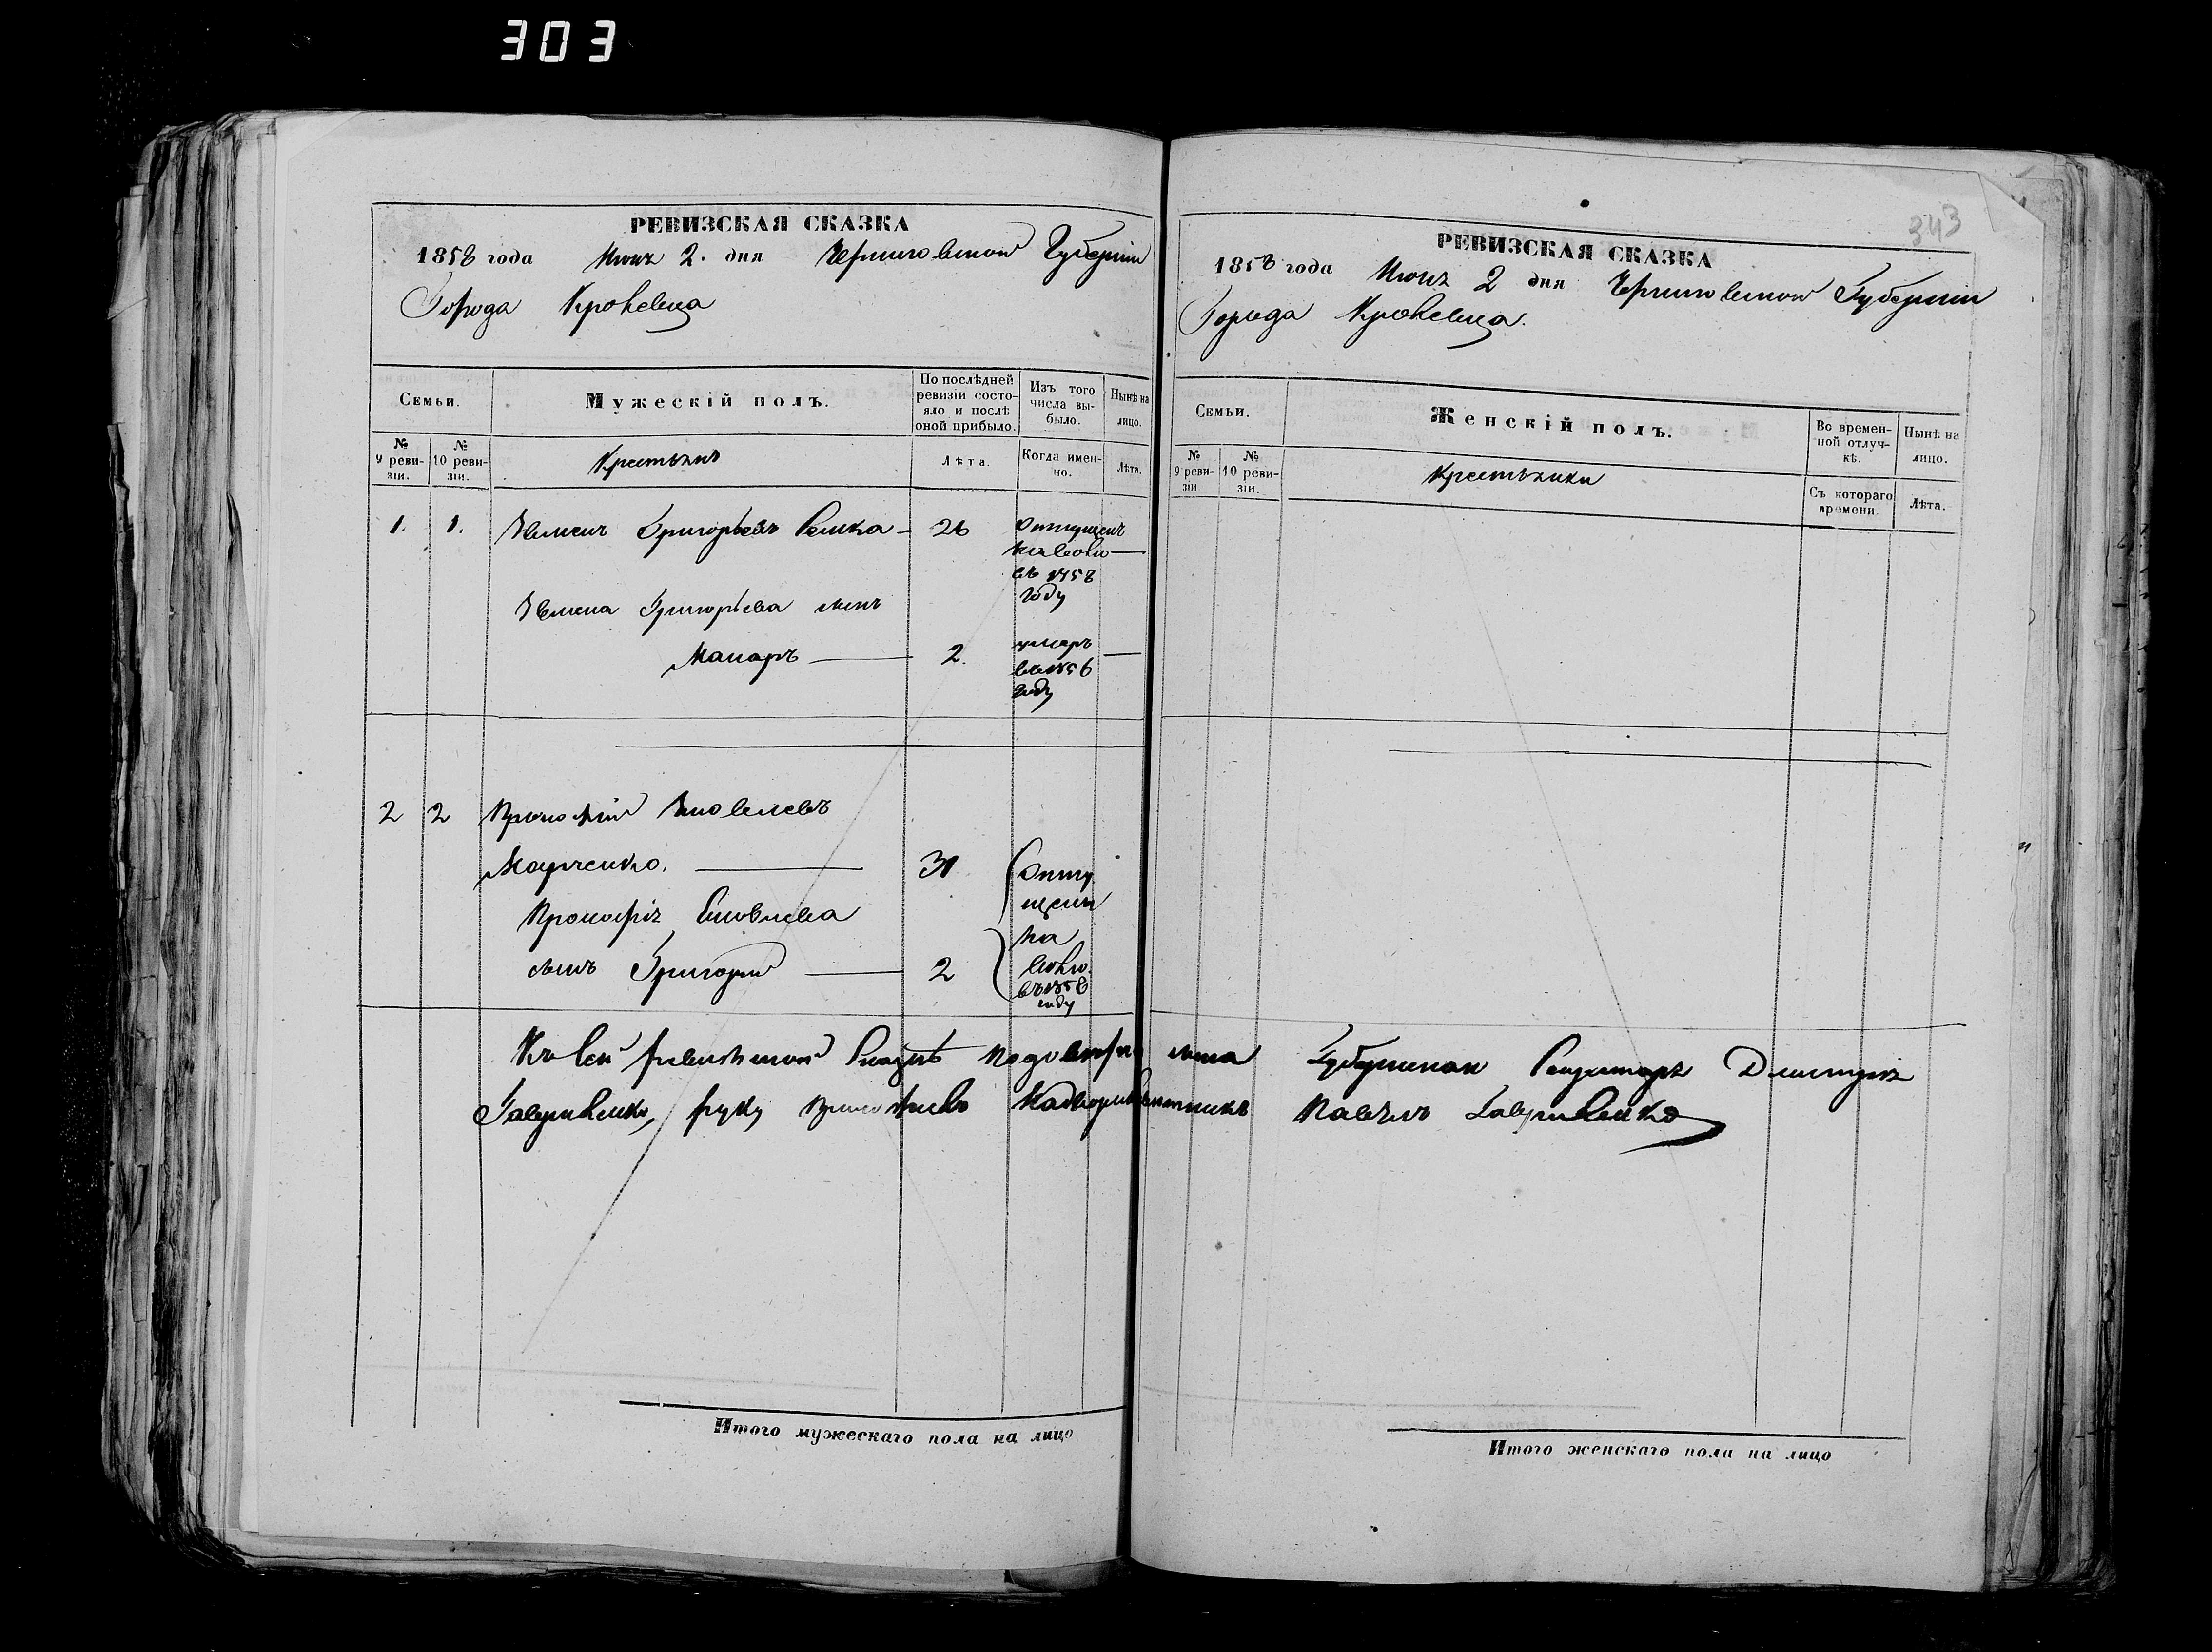 303
РЕВИЗСКАЯ СКАЗКА
1858 года Июня 2. дня Черниговской Губерніи
Города Кролевца
Семьи.
Мужескій полъ.
По послѣдней ревизіи состояло и послѣ оной прибыло.
Изъ того числа выбыло.
Нынѣ на лицо.
№ 9 ревизіи.
№ 10 ревизіи.
Крестьянъ
Лѣта.
Когда именно.
Лѣта.
1. 1. Григорьевъ 26 Отпущенъ
на волю
въ 1858
году
Григорьева сынъ
Макаръ 2. умеръ
въ 1856
году
2 2 Прокофій Яковлевъ
31 Отпу
щены
Прокофія Яковлева
на
сынъ Григорій 2 волю
въ 1858
году
Итого мужескаго пола на лицо
343
РЕВИЗСКАЯ СКАЗКА
1858 года Июня 2 дня Черниговской Губерніи
Города Кролевца.
Семьи.
Женскій полъ.
Во временной отлучкѣ.
Нынѣ на лицо.
№ 9 ревизіи
№ 10 ревизіи.
Крестьянки
Съ котораго времени.
Лѣта.
Къ сей ревизской Сказкѣ вмѣсто Губернскаго Секретаря Дмитрія
Гавриленко, руку приложилъ Павелъ Гавриленко
Итого женскаго пола на лицо